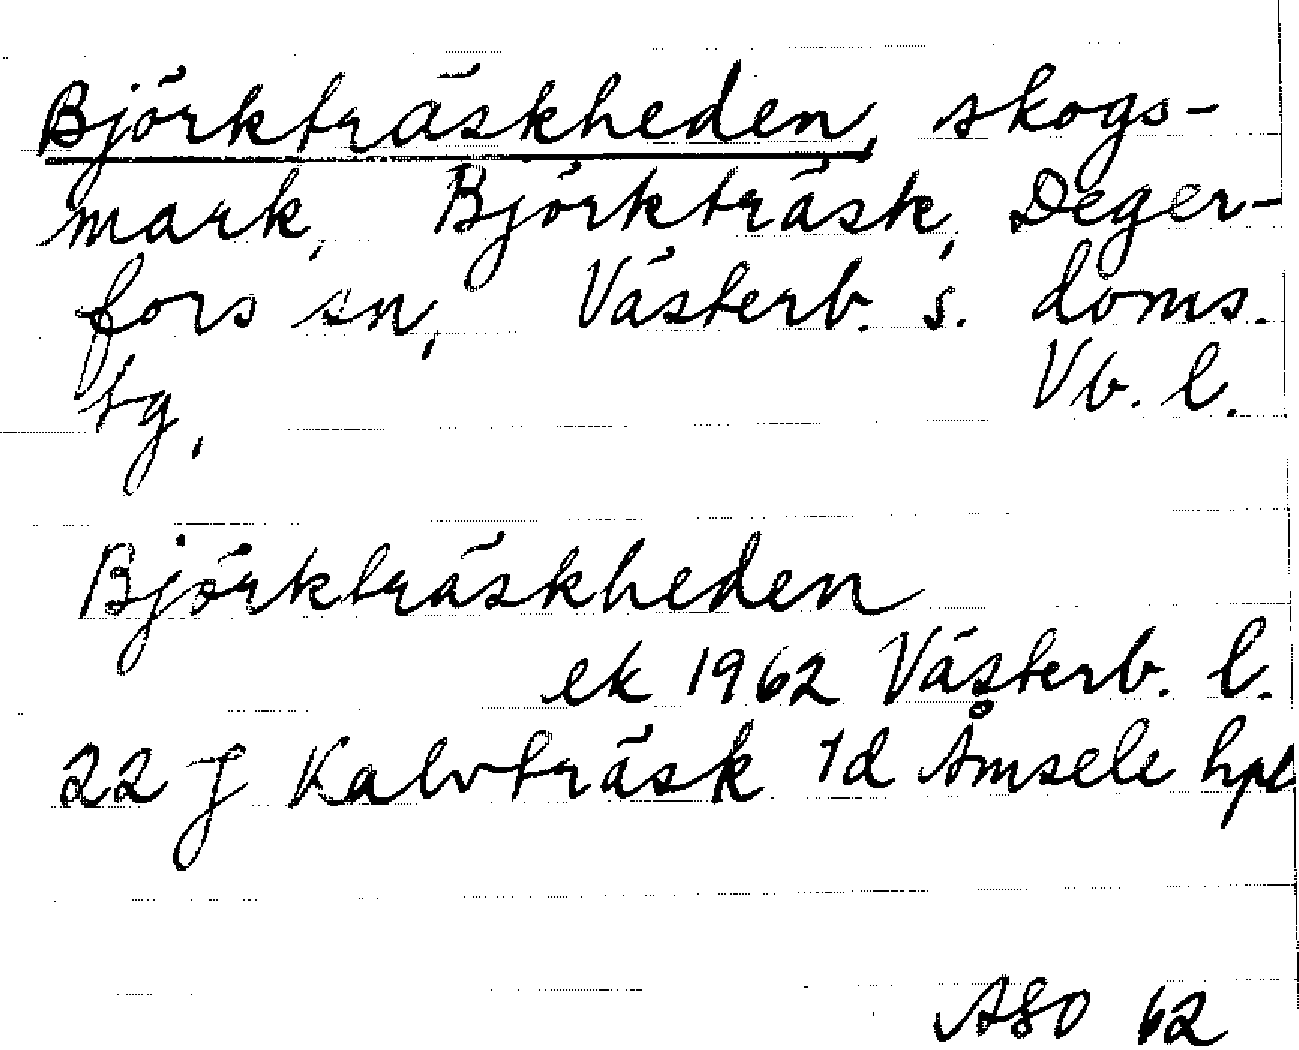 Björkträskheden, skogs-
mark, Björkträsk, Deger-
fors sn, Västerb. s. doms.
tg, Vb. l.
Björkträskheden
ek 1962 Västerb. l.
22 J Kalvträsk 1d Åmsele hpl
ASO 62